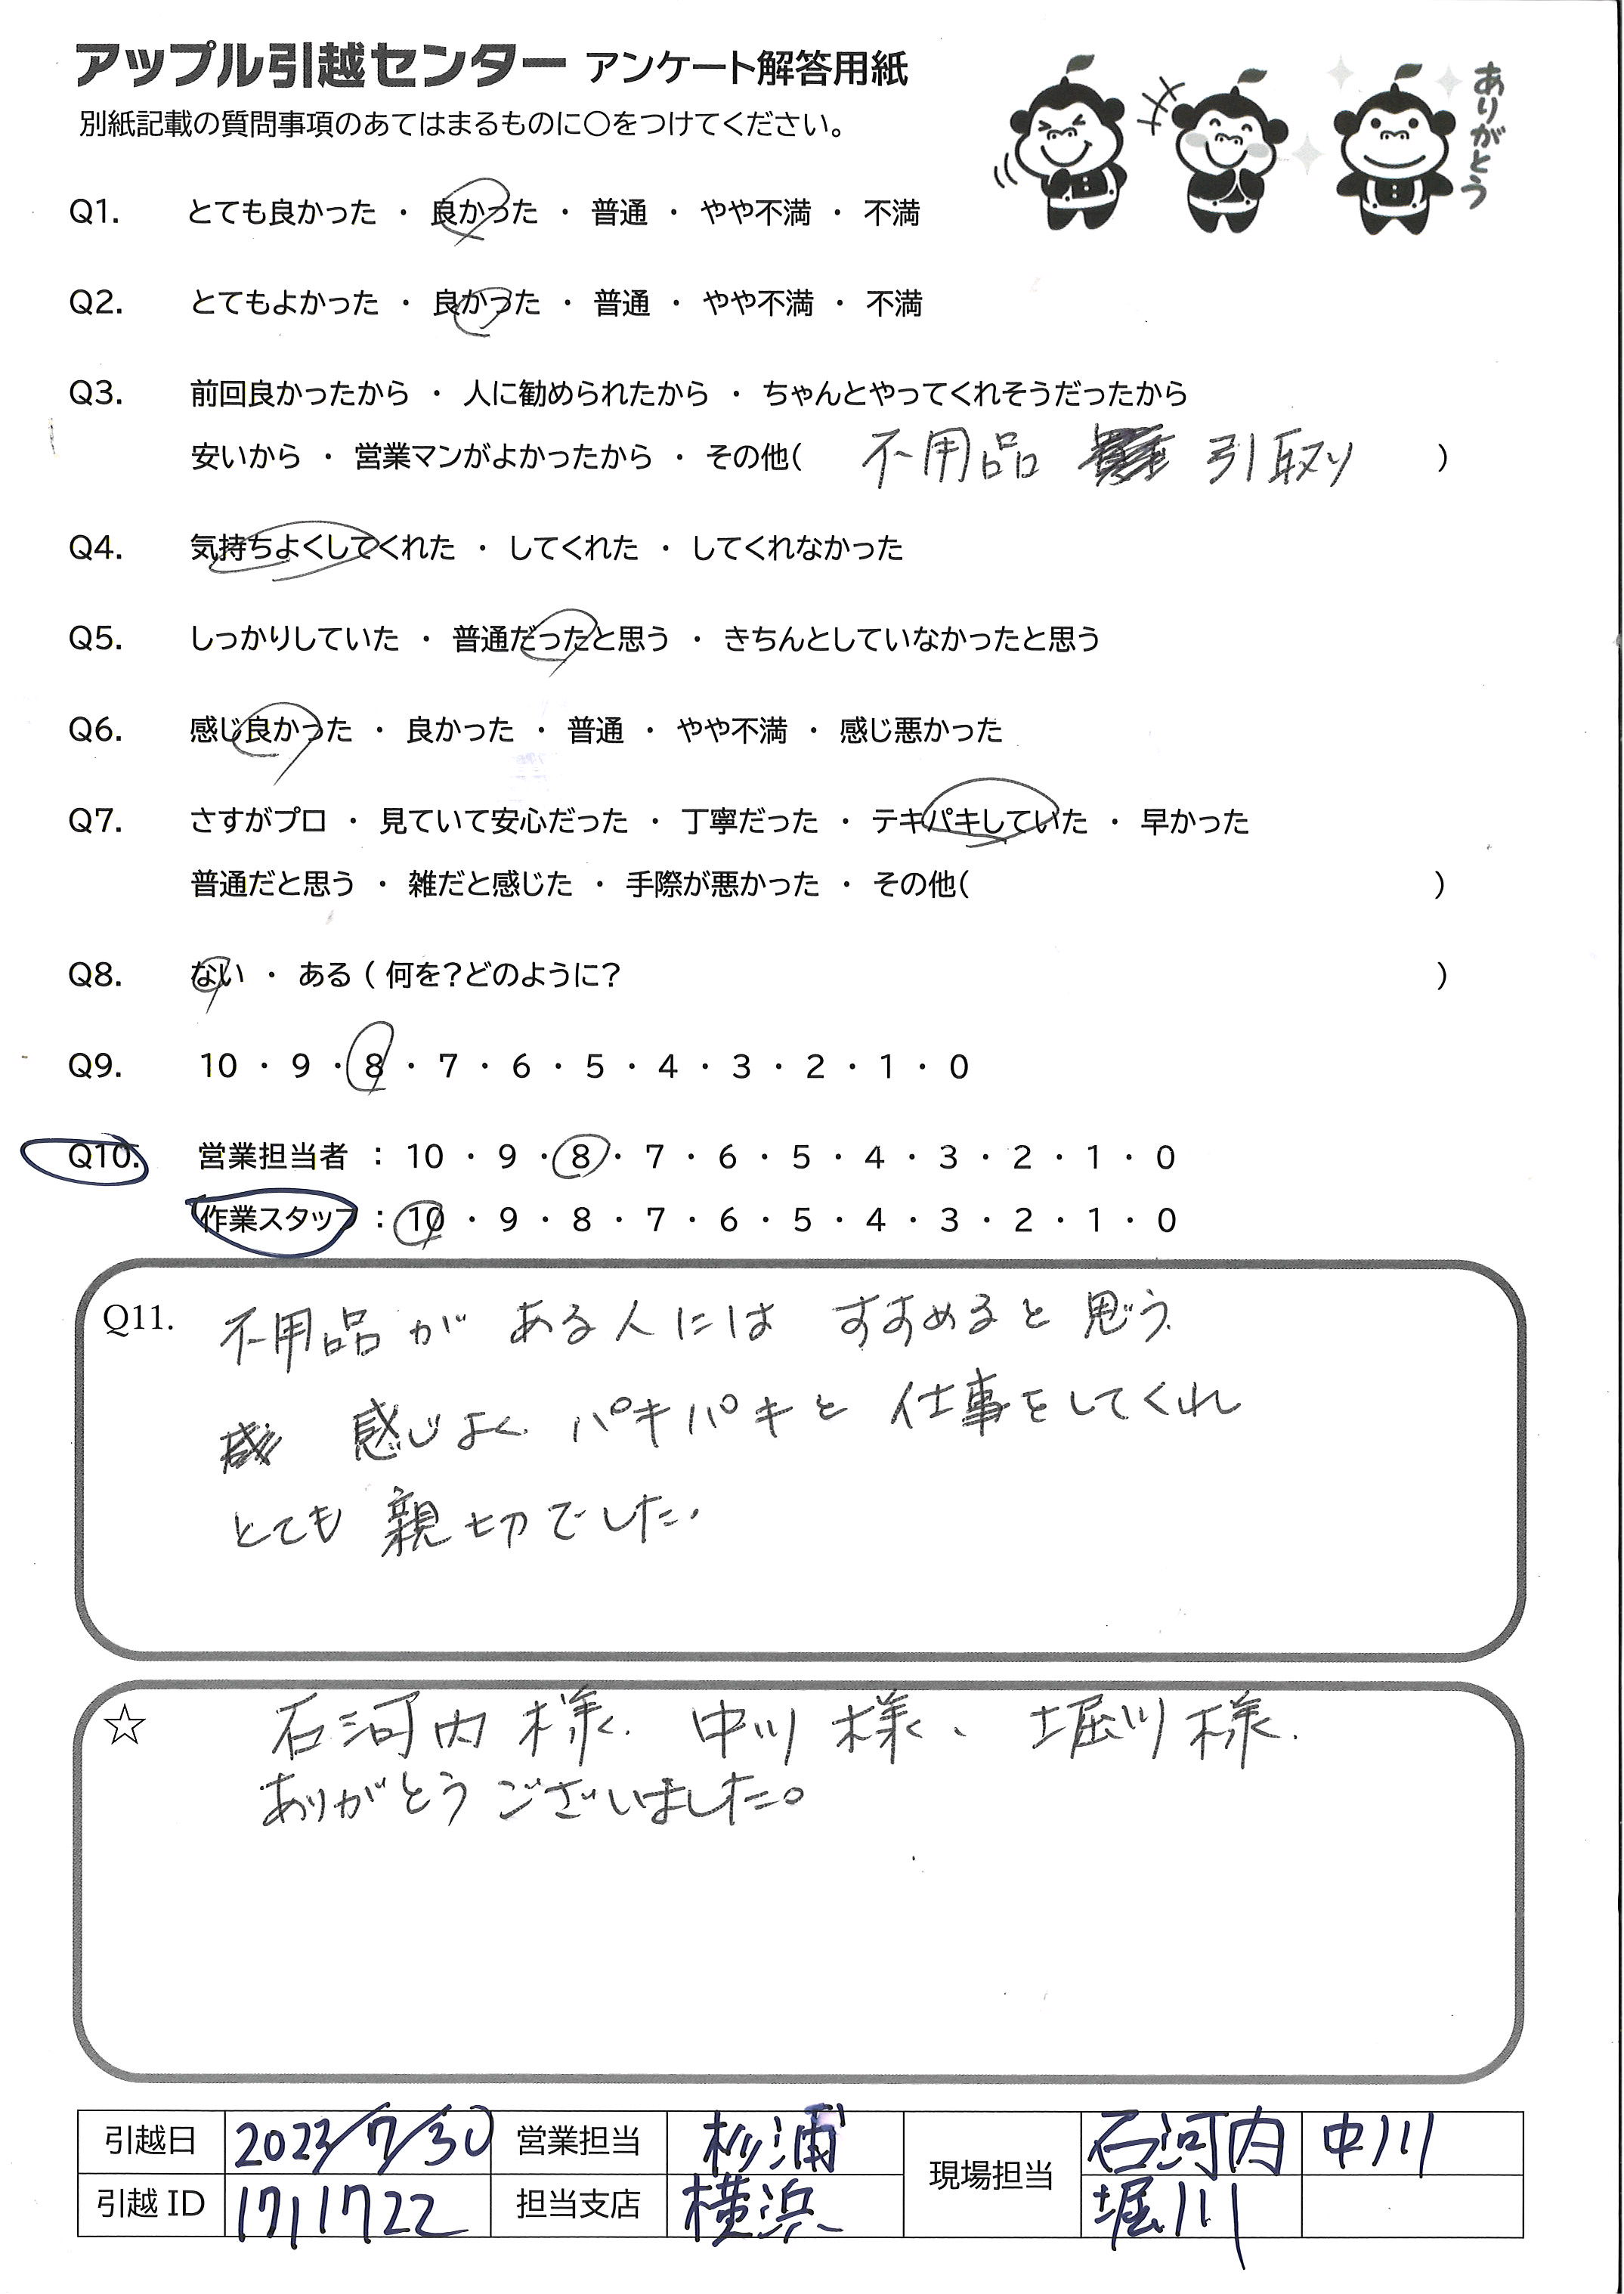 アップル引越センター アンケート解答用紙
別紙記載の質問事項のあてはまるものに○をつけてください。
ありがとう
Q1. とても良かった ・ 良かった ・ 普通 ・ やや不満 ・ 不満
Q2. とてもよかった ・ 良かった ・ 普通 ・ やや不満 ・ 不満
Q3. 前回良かったから ・ 人に勧められたから ・ ちゃんとやってくれそうだったから
安いから ・ 営業マンがよかったから ・ その他( 不用品 引取り )
Q4. 気持ちよくしてくれた ・ してくれた ・ してくれなかった
Q5. しっかりしていた ・ 普通だったと思う ・ きちんとしていなかったと思う
Q6. 感じ良かった ・ 良かった ・ 普通 ・ やや不満 ・ 感じ悪かった
Q7. さすがプロ ・ 見ていて安心だった ・ 丁寧だった ・ テキパキしていた ・ 早かった
普通だと思う ・ 雑だと感じた ・ 手際が悪かった ・ その他( )
Q8. ない ・ ある ( 何を?どのように? )
Q9. 10 ・ 9 ・ 8 ・ 7 ・ 6 ・ 5 ・ 4 ・ 3 ・ 2 ・ 1 ・ 0
Q10. 営業担当者 : 10 ・ 9 ・ 8 ・ 7 ・ 6 ・ 5 ・ 4 ・ 3 ・ 2 ・ 1 ・ 0
作業スタッフ : 10 ・ 9 ・ 8 ・ 7 ・ 6 ・ 5 ・ 4 ・ 3 ・ 2 ・ 1 ・ 0
Q11. 不用品が ある人には すすめると思う.
感じよく パキパキと 仕事をしてくれ
とても 親切でした.
☆ 石河内様. 中川様、堀川様.
ありがとうございました。
引越日 2023/7/30 営業担当 杉浦 現場担当 石河内 中川
引越 ID 1711722 担当支店 横浜 堀川